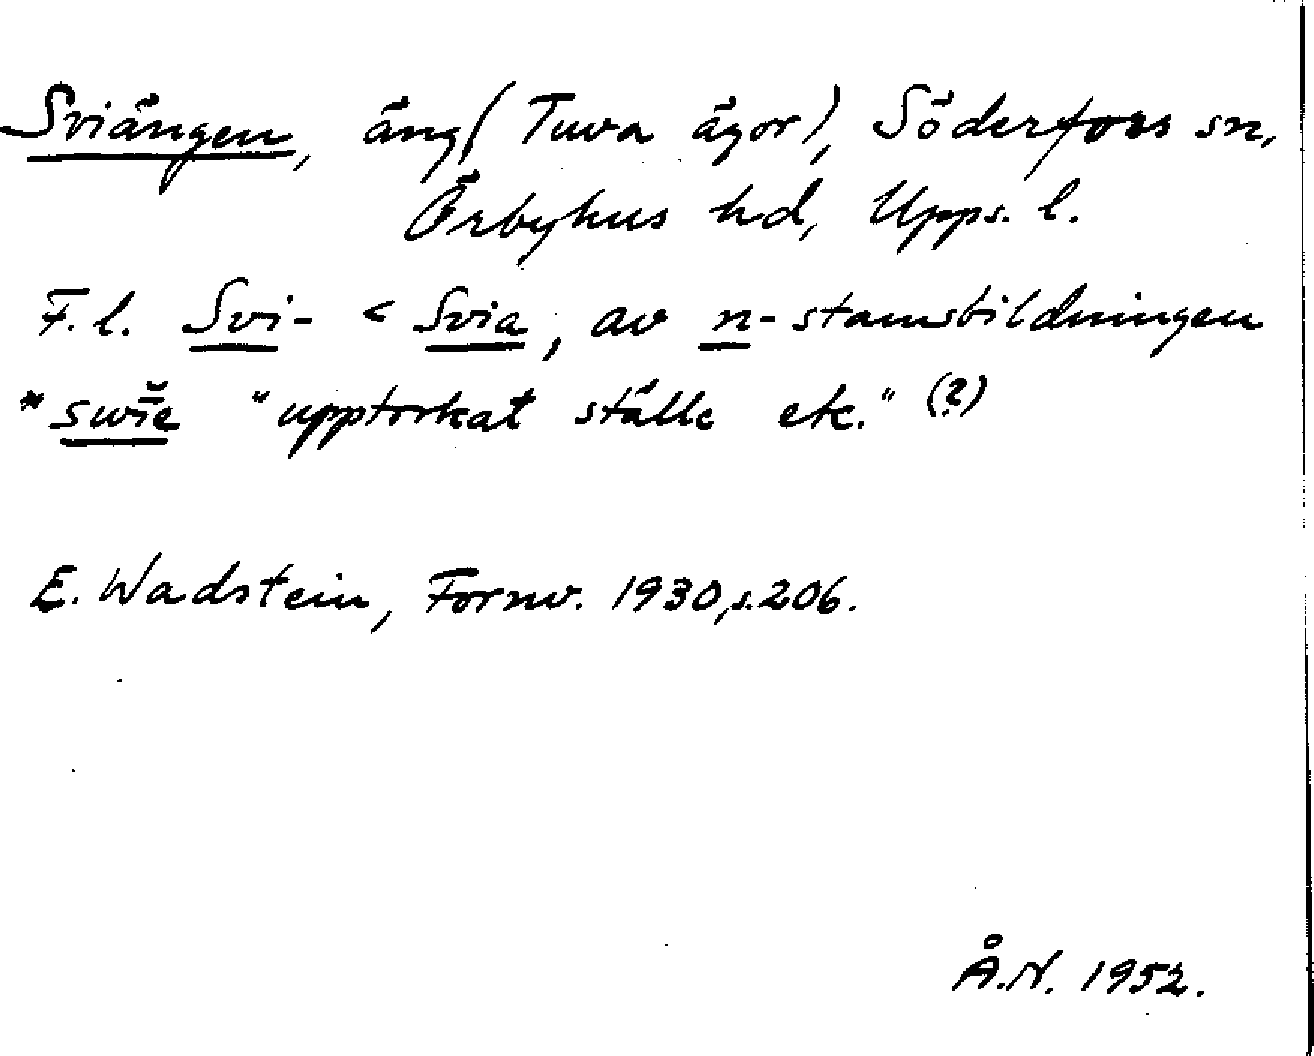 Sviängen, äng (Tuva ägor), Söderfors sn,
Örbyhus hd, Upps. l.
F.l. Svi- < Svia, av n-stamsbildningen
*swīĕ "upptorkat ställe etc." (?)
E. Wadstein, Fornv. 1930, s. 206.
Å.N. 1952.